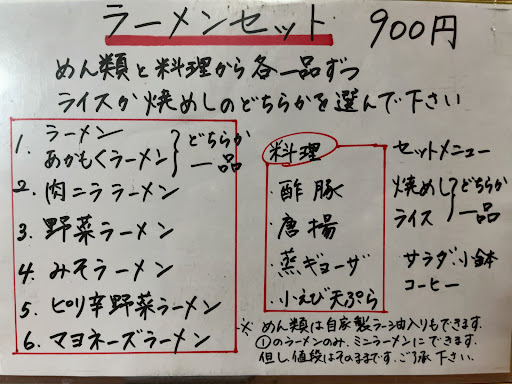 ラーメンセット 900円
めん類と料理から各一品ずつ
ライスか焼めしのどちらかを選んで下さい
1. ラーメン
あかもくラーメン } どちらか一品
2. 肉ニララーメン
3. 野菜ラーメン
4. みそラーメン
5. ピリ辛野菜ラーメン
6. マヨネーズラーメン
料理
・酢豚
・唐揚
・蒸ギョーザ
・小えび天ぷら
セットメニュー
焼めし
ライス } どちらか一品
サラダ、小鉢
コーヒー
※ めん類は自家製ラー油入りもできます。
①のラーメンのみ、ミニラーメンにできます。
但し値段はそのままです。ご了承下さい。